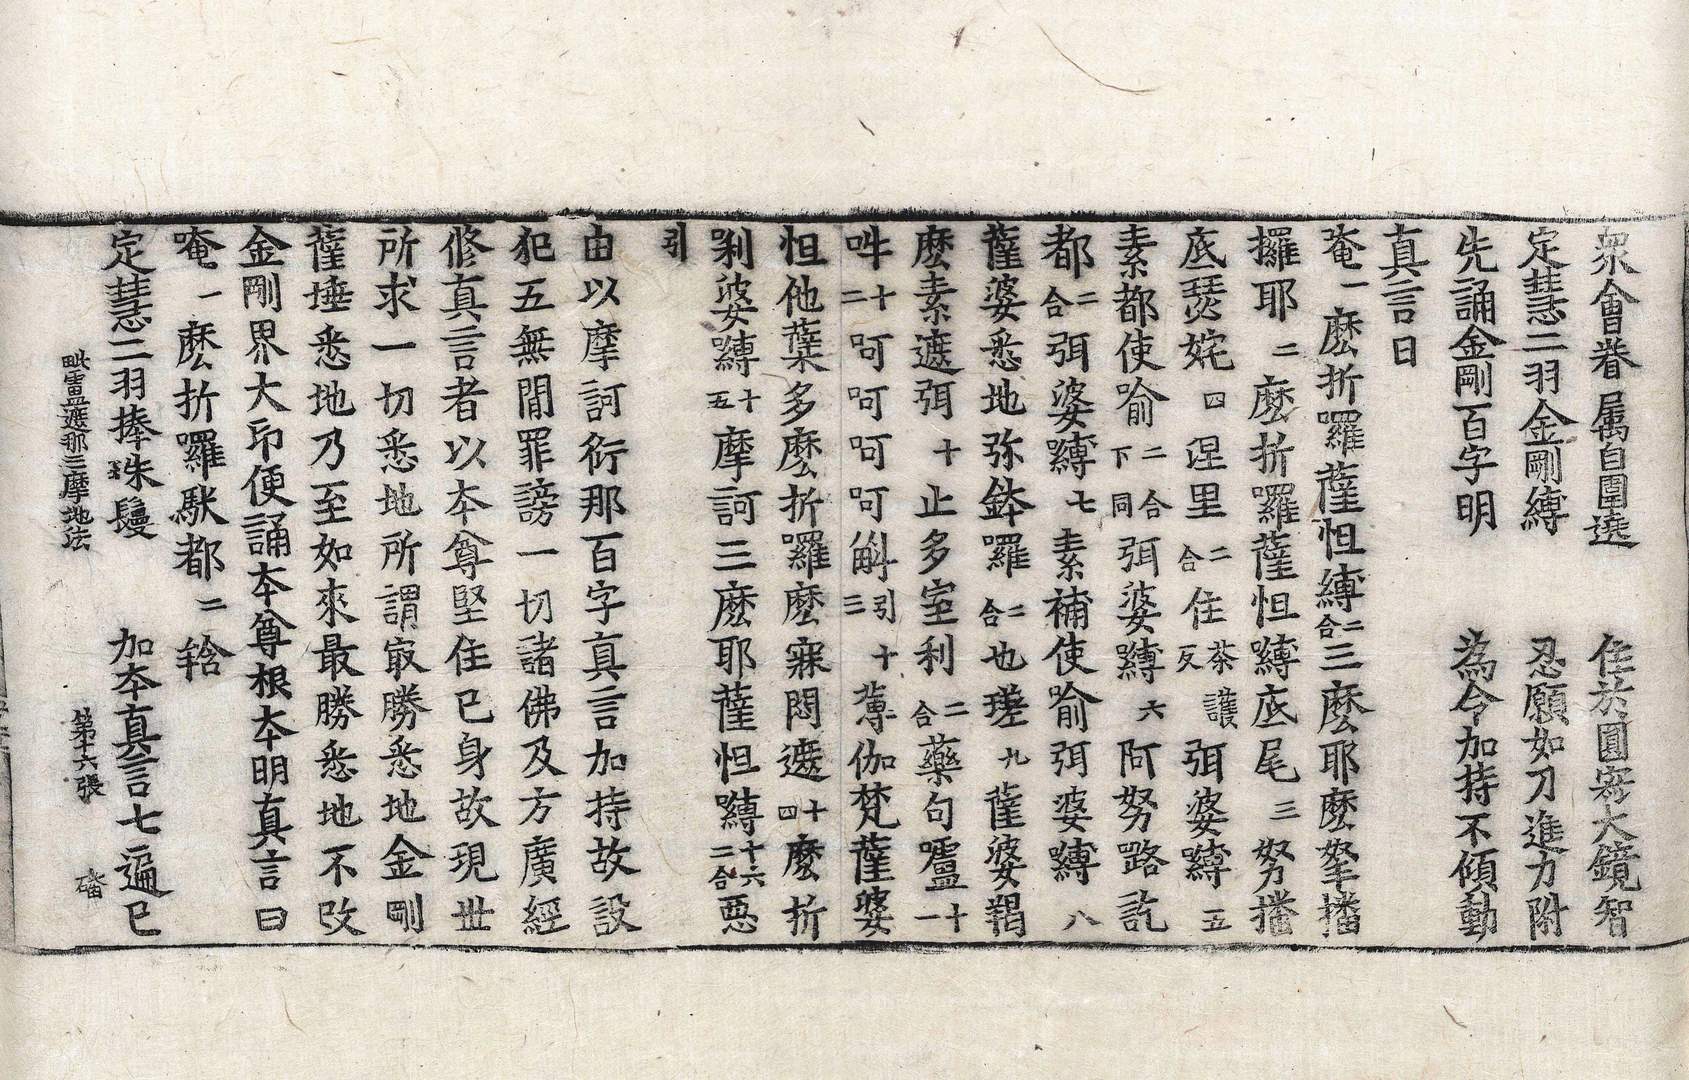 衆會眷属自圍遶　住於圓寂大鏡智
定慧二羽金剛縛　忍願如刀進力附
先誦金剛百字明　為令加持不傾動
真言曰
菴一麽折囉薩怛縛二合三麽耶麽拏播
攞耶二麽折囉薩怛縛底尾三努播
底瑟姹四涅里二合住茶護反弭婆縛五
素都使喻二合下同弭婆縛六阿努路訖
都二合弭婆縛七素補使喻弭婆縛八
薩婆悉地弥鉢囉二合也瑳九薩婆羯
麽素遮弭十止多室利二合藥句嚧十一
吽十二呵呵呵呵斛引十三薄伽梵薩婆
怛他蘖多麽折囉麽寐悶遮十四麽折
唎婆縛十五摩訶三麽耶薩怛縛十六二合惡
引
由以摩訶衍那百字真言加持故設
犯五無間罪謗一切諸佛及方廣經
修真言者以本尊堅住已身故現世
所求一切悉地所謂㝡勝悉地金剛
薩埵悉地乃至如來最勝悉地不改
金剛界大印便誦本尊根本明真言曰
唵一麽折囉馱都二𤚥
定慧二羽捧珠鬘　加本真言七遍已
毗盧遮那三摩地法　第十六張　磻